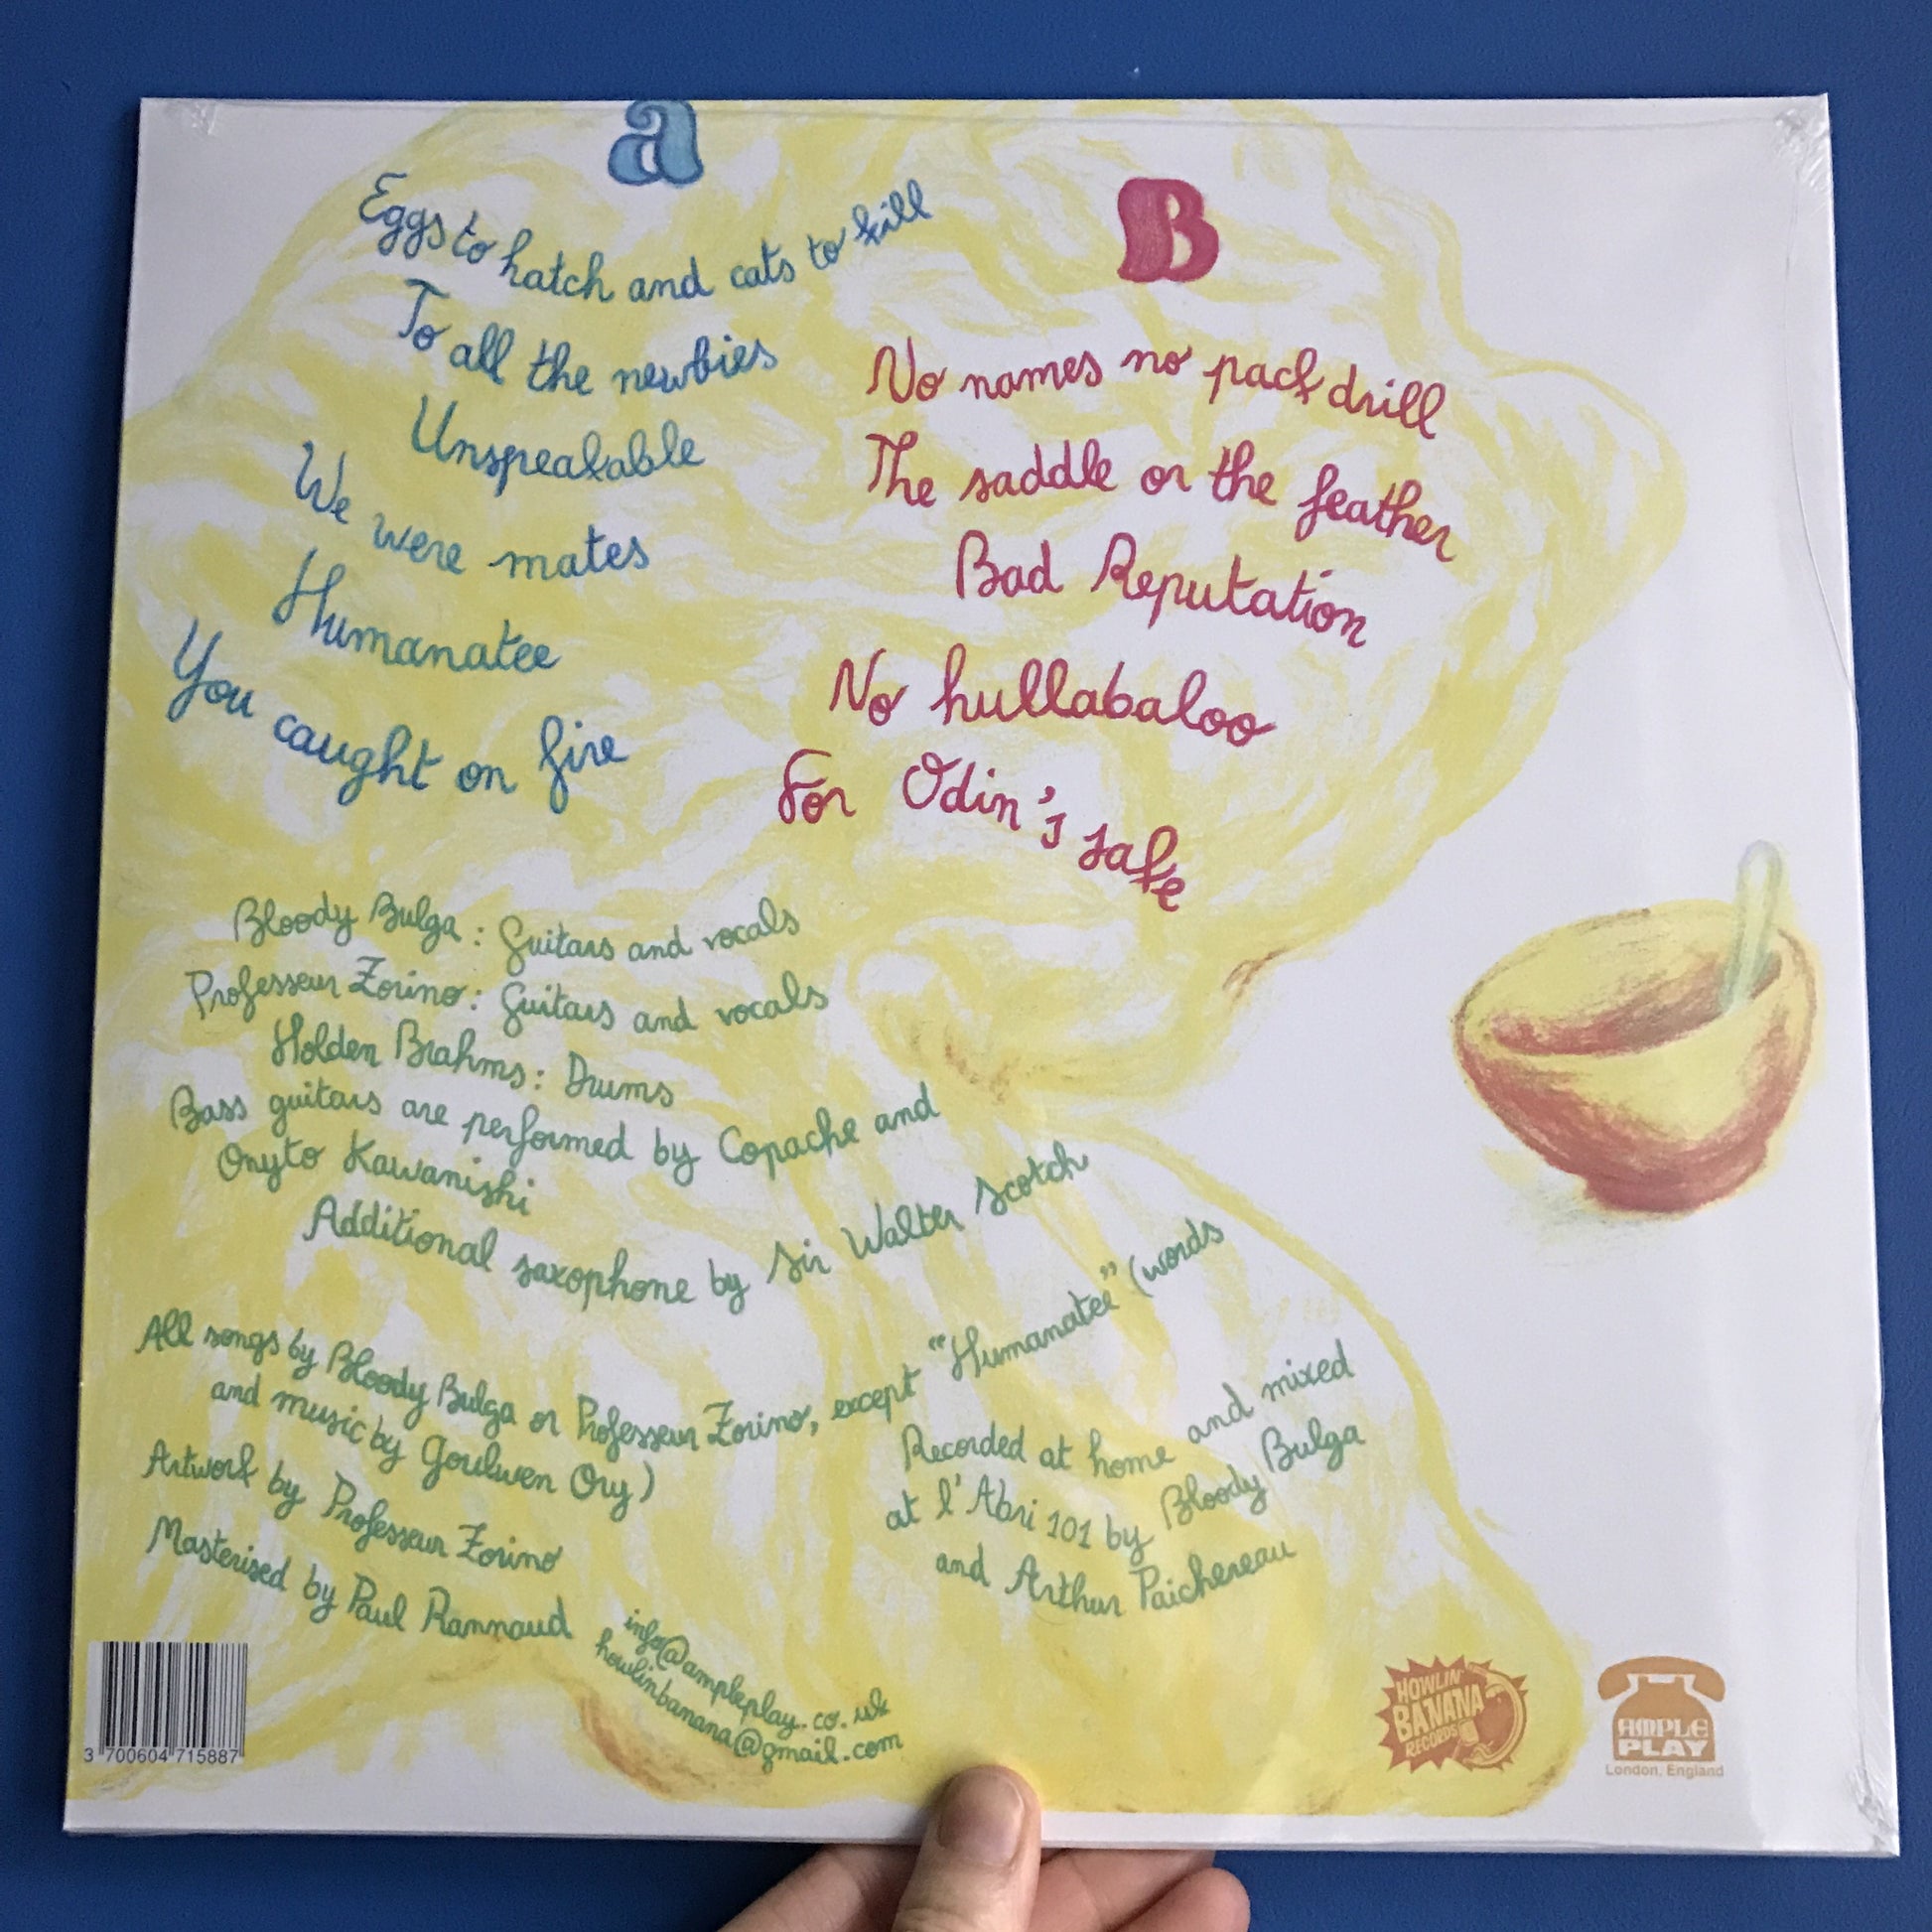 a
Eggs to hatch and cats to kill
To all the newbies
Unspeakable
We were mates
Humanatee
You caught on fire
B
No names no pack drill
The saddle or the feather
Bad Reputation
No hullabaloo
For Odin's sake
Bloody Bulga : Guitars and vocals
Professeur Zorino : Guitars and vocals
Holden Brahms : Drums
Bass guitars are performed by Copache and
Onyto Kawanishi
Additional saxophone by Sir Walter Scotch
All songs by Bloody Bulga or Professeur Zorino, except "Humanatee" (words
and music by Goulwen Ory)
Artwork by Professeur Zorino
Masterised by Paul Rannaud
Recorded at home and mixed
at l'Abri 101 by Bloody Bulga
and Arthur Paichereau
info@ampleplay.co.uk
howlinbanana@gmail.com
3 700604 715887
HOWLIN'
BANANA
RECORDS
AMPLE
PLAY
London, England